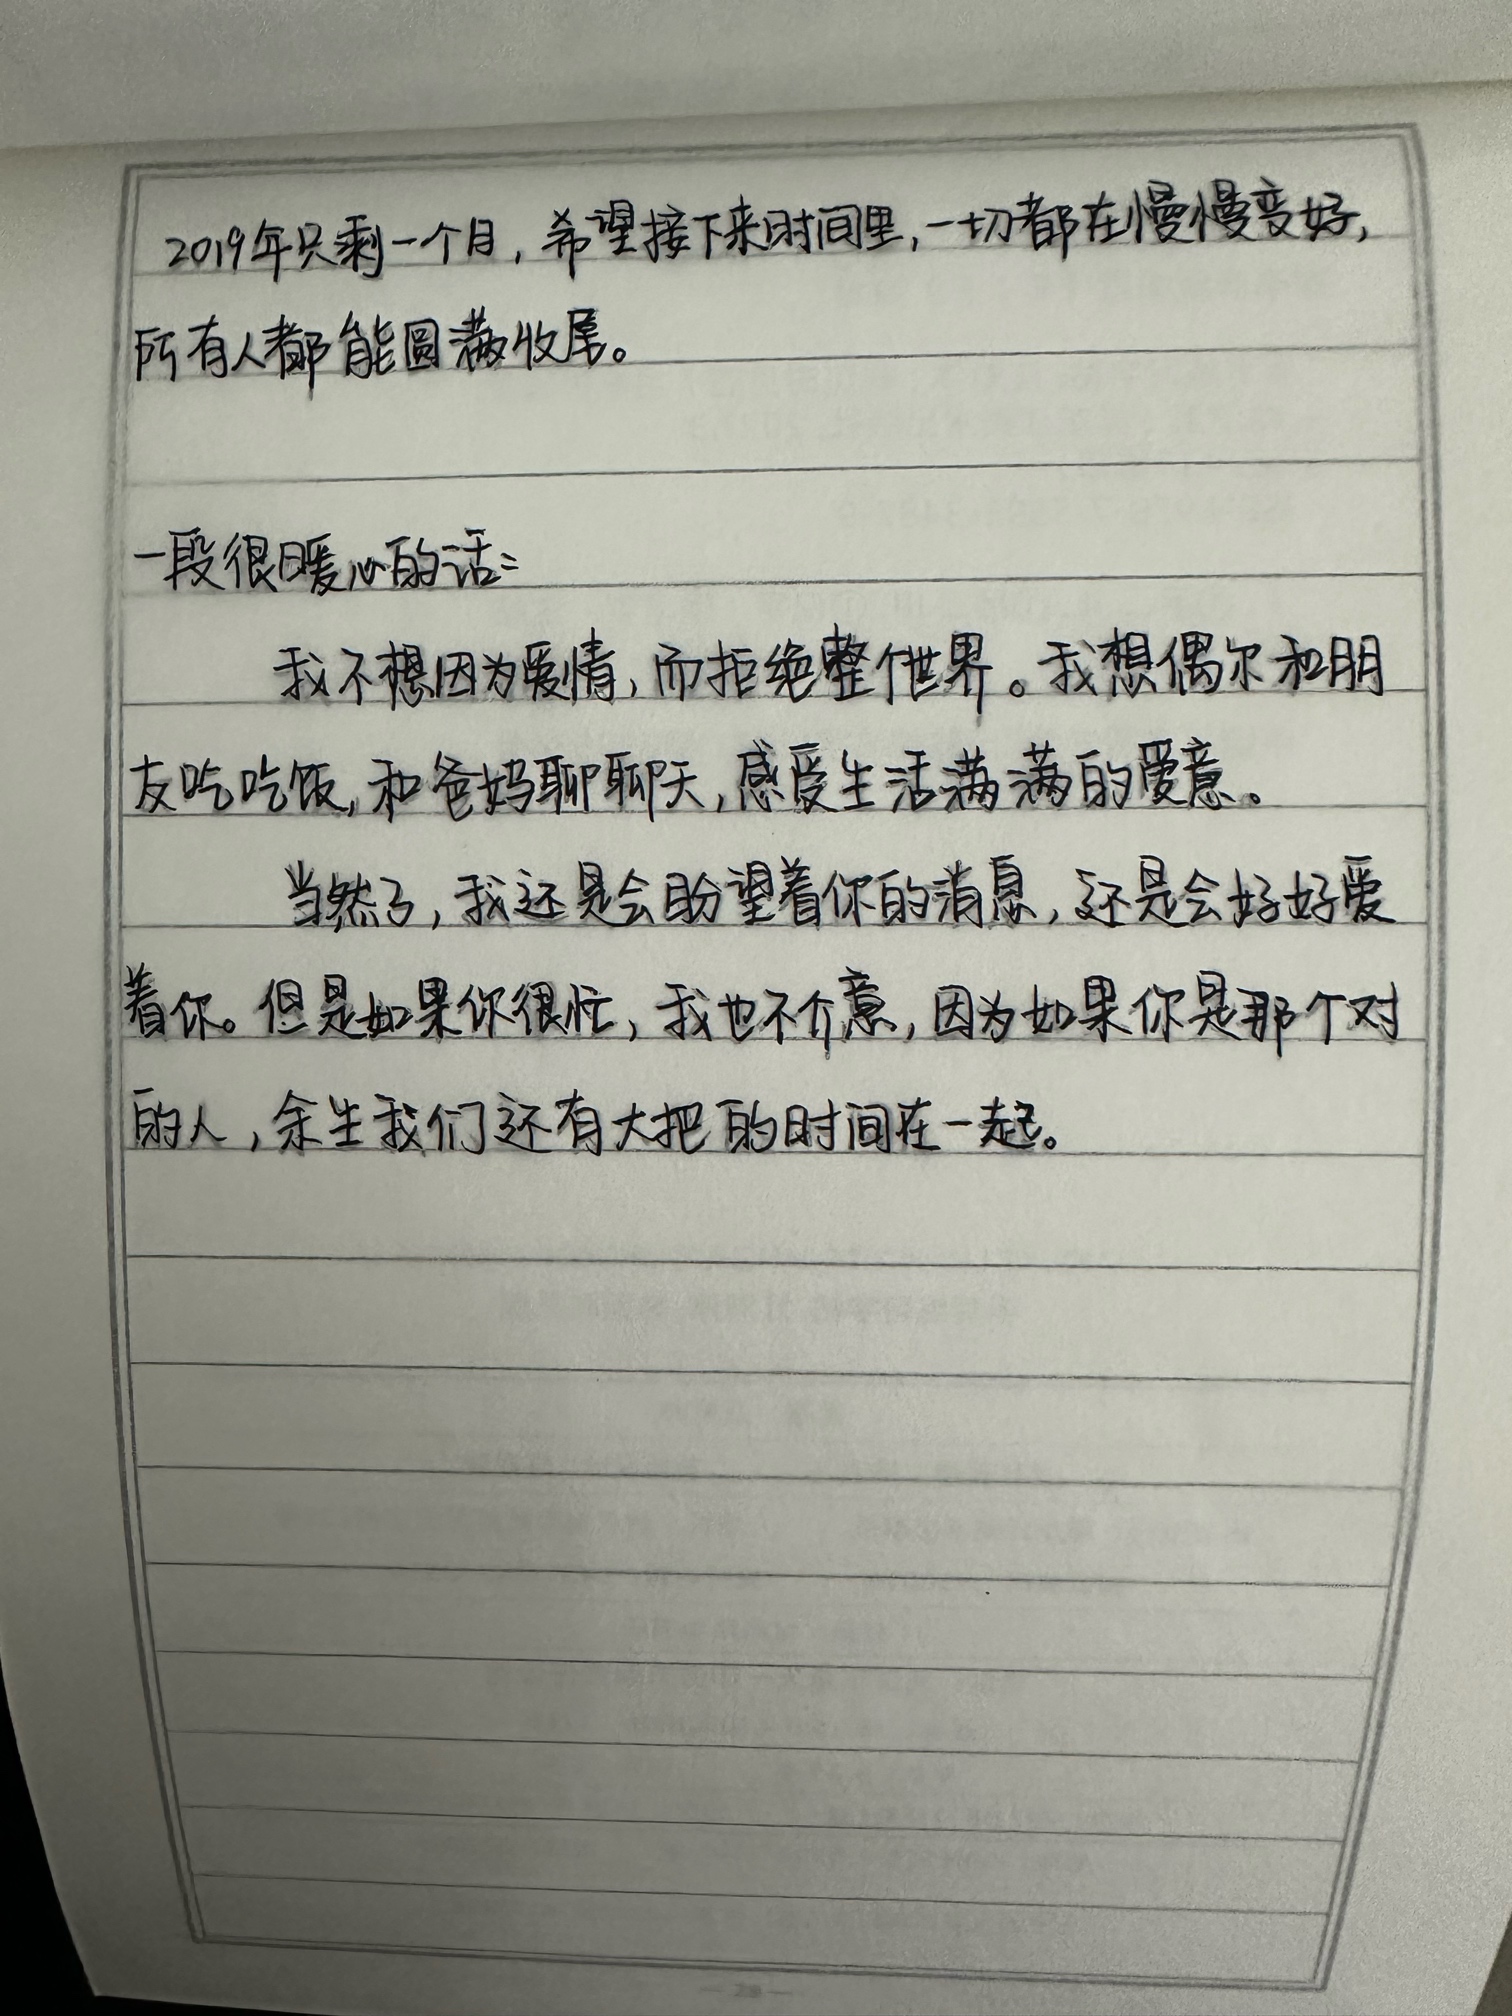 2019年只剩一个月，希望接下来时间里，一切都在慢慢变好，
所有人都能圆满收尾。
一段很暖心的话：
我不想因为爱情，而拒绝整个世界。我想偶尔和朋
友吃吃饭，和爸妈聊聊天，感受生活满满的爱意。
当然了，我还是会盼望着你的消息，还是会好好爱
着你。但是如果你很忙，我也不介意，因为如果你是那个对
的人，余生我们还有大把的时间在一起。